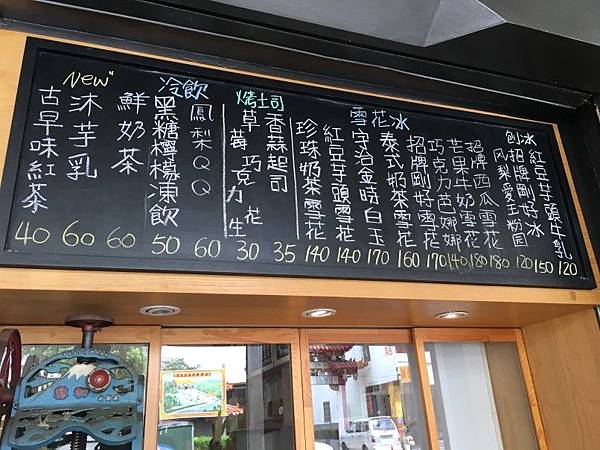 刨冰
紅豆芋頭牛乳
120
招牌剛好冰
150
风梨愛玉粉圓
120
雪花冰
招牌西瓜雪花
180
芒果牛奶雪花
180
巧克力芭娜娜
140
招牌剛好雪花
170
泰式奶茶雪花
160
宇治金時白玉
170
紅豆芋頭雪花
140
珍珠奶茶雪花
140
烤土司
香蒜起司
35
草莓 巧克力 花生
30
冷飲
鳳梨QQ
60
黑糖檸檬凍飲
50
鮮奶茶
60
New"
沐芋乳
60
古早味紅茶
40